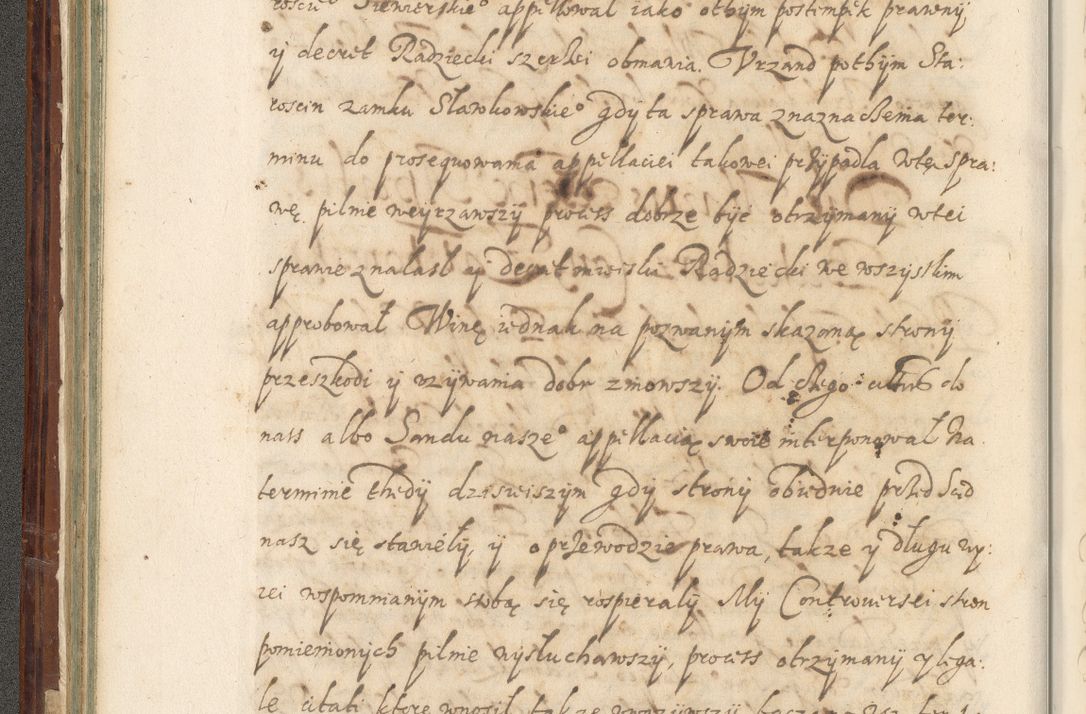 roscie Siewierskie° appellował iako othym postempek prawny
y decret Radziecki szerzei obmawia. Vrzand pothym Sta:
roscin zamku Sławkowskie° gdy ta sprawa znaznaczenia ter:
minu do prosequowania appellaciei takowei przypadla wtę spra:
wę, pilnie weyrzawszy process dobrze byc otrzymany wtei
sprawie znalasł y decret mieiski Radziecki we wszystkim
approbował Winę iednak na pozwanym skazaną strony
przeszkodi y vzywania dobr zniowszy. Od czego do
nass albo Sandu nasze° appellacią swoie interponował Na
terminie thedy dzisieiszym gdy strony obiednie przed Sąd
nasz się stawiely, y o przewodzie prawa, takze y długu wy:
zei wspommianym stobą się rospieraly My Controuersei stron
pomienionych pilnie wysłuchawszy, process otrzymany y lega:
le citati ktore wnosil takze